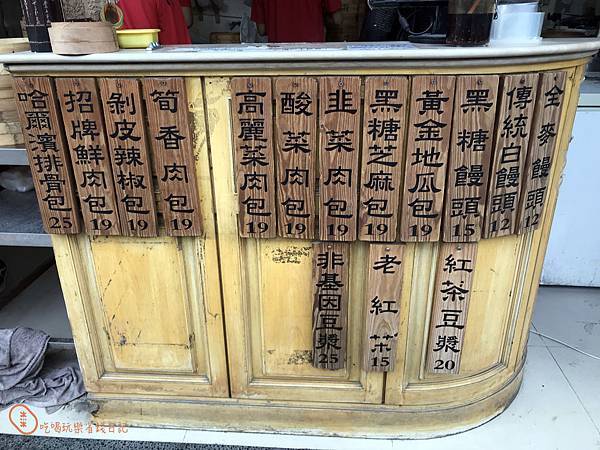 哈爾濱排骨包 25
招牌鮮肉包 19
剝皮辣椒包 19
筍香肉包 19
高麗菜肉包 19
酸菜肉包 19
韭菜肉包 19
黑糖芝麻包 19
黃金地瓜包 19
黑糖饅頭 15
傳統白饅頭 12
全麥饅頭 12
非基因豆漿 25
老紅茶 15
紅茶豆漿 20
吃喝玩樂省錢日記